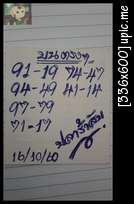 บนตรงๆ
91-19 74-47
94-49 41-14
97-79
71-17
16/10/60
[336x600]upic.me